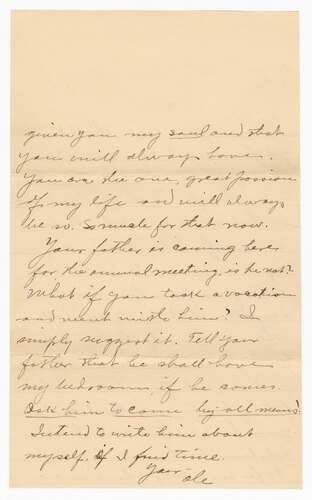 given you my soul and that
you will always have.
You are the one, great passion
of my life and will always
be so. So much for that now.
Your father is coming here
for the annual meeting, is he not?
What if you took a vacation
and went with him? I
simply suggest it. Tell your
father that he shall have
my bedroom, if he comes.
Ask him to come by all means.
I intend to write him about
myself, if I find time.
Your